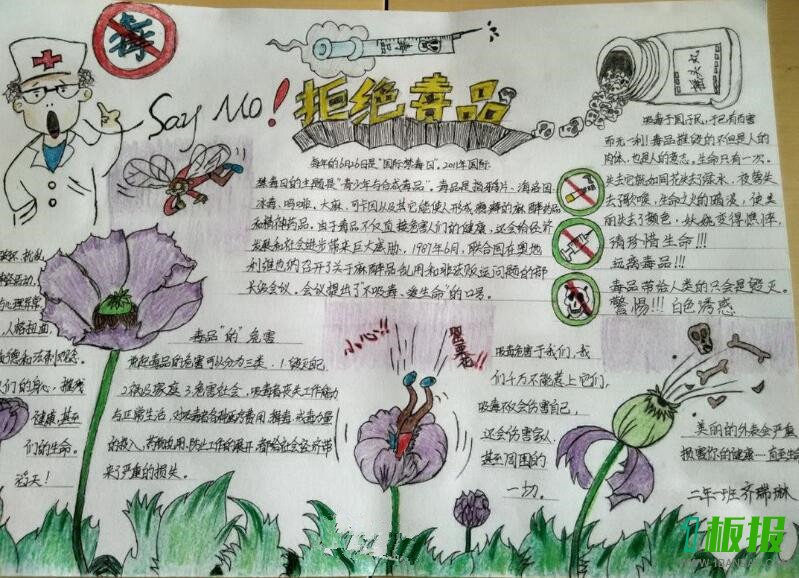 毒
Say No!
拒绝毒品
毒品
每年的6月26日是"国际禁毒日"。2011年国际
禁毒日的主题是"青少年与合成毒品"。毒品是指鸦片、海洛因
冰毒、吗啡、大麻、可卡因以及其它能使人形成瘾癖的麻醉药品
和精神药品。由于毒品不仅直接危害人们的健康，还会给经济
发展和社会进步带来巨大威胁。1987年6月，联合国在奥地
利维也纳召开了关于麻醉品乱用和非法贩运问题的部
长级会议，会议提出了"不吸毒、爱生命"的口号。
吸毒于国于民，于己有百害
而无一利！毒品摧毁的不但是人的
肉体，也是人的意志。生命只有一次。
失去它就如同花失去了
生命之火的
失去了颜色，
请珍惜生命!!!
远离毒品!!!
毒品带给人类的只会是毁灭。
警惕!!!白色诱惑
毒品"的"危害
吸食毒品的危害可以分为三类，1.毁灭自己
2.祸及家庭 3.危害社会，吸毒者丧失工作能力
与正常生活，对吸毒者各种医疗费用，缉毒、戒毒力量
的投入，药物滥用，防止工作的展开，都给社会经济带
来了严重的损失。
人格扭曲
道德和法制观念。
人们的身心，摧残
健康，甚至
们的生命。
小心!!
罂粟花!!
吸毒危害于我们，我
们千万不能惹上它们，
吸毒不仅会伤害自己，
还会伤害家人
甚至周围的
一切。
美丽的外表会严重
损害你的健康一直至生命
二年一班齐瑞琳
板报